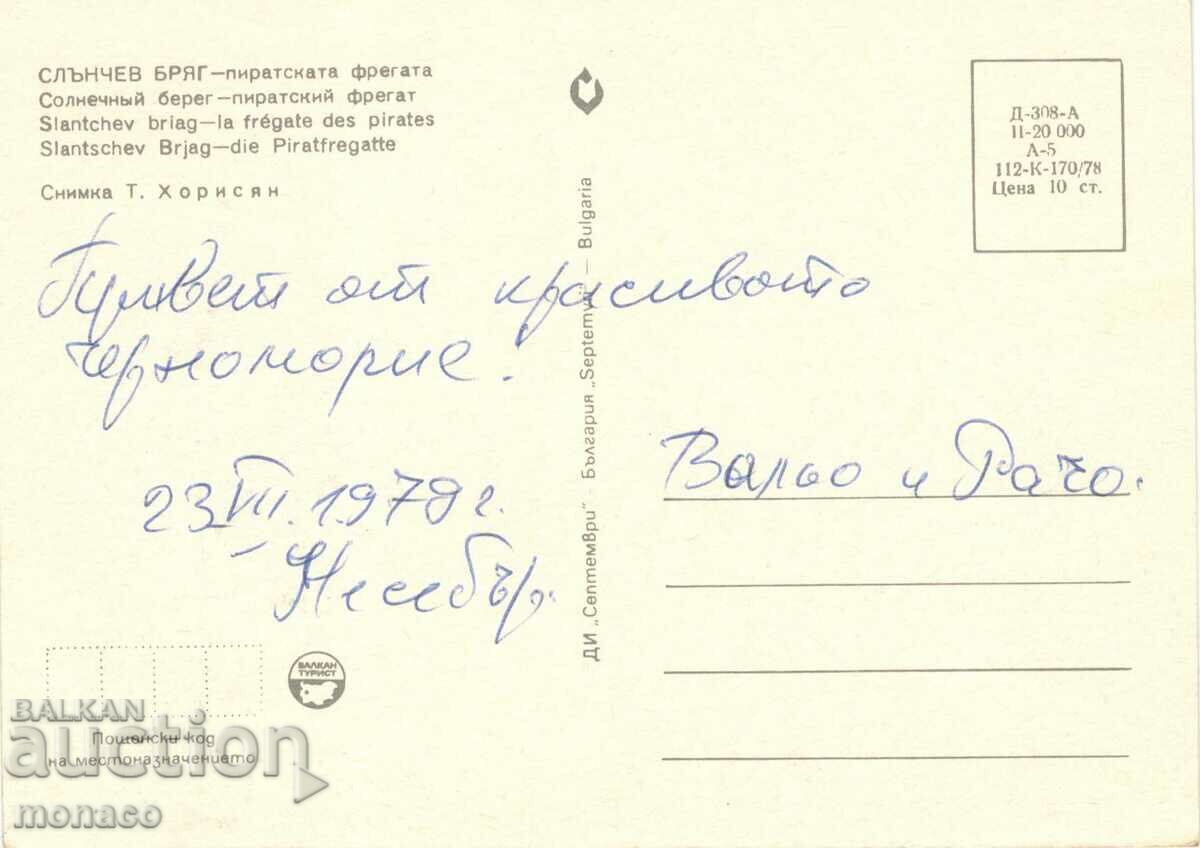 СЛЪНЧЕВ БРЯГ—пиратската фрегата
Солнечный берег—пиратский фрегат
Slantchev briag—la frégate des pirates
Slantschev Brjag—die Piratfregatte
Снимка Т. Хорисян
Привет от красивото
черноморие!
23 VII. 1979 г.
Несебър.
ДИ „Септември" - България „Septemvri" — Bulgaria
Д-308-А
II-20 000
А-5
112-К-170/78
Цена 10 ст.
Вальо и Рачо.
БАЛКАН
ТУРИСТ
Пощенски код
на местоназначението
BALKAN
auction
monaco